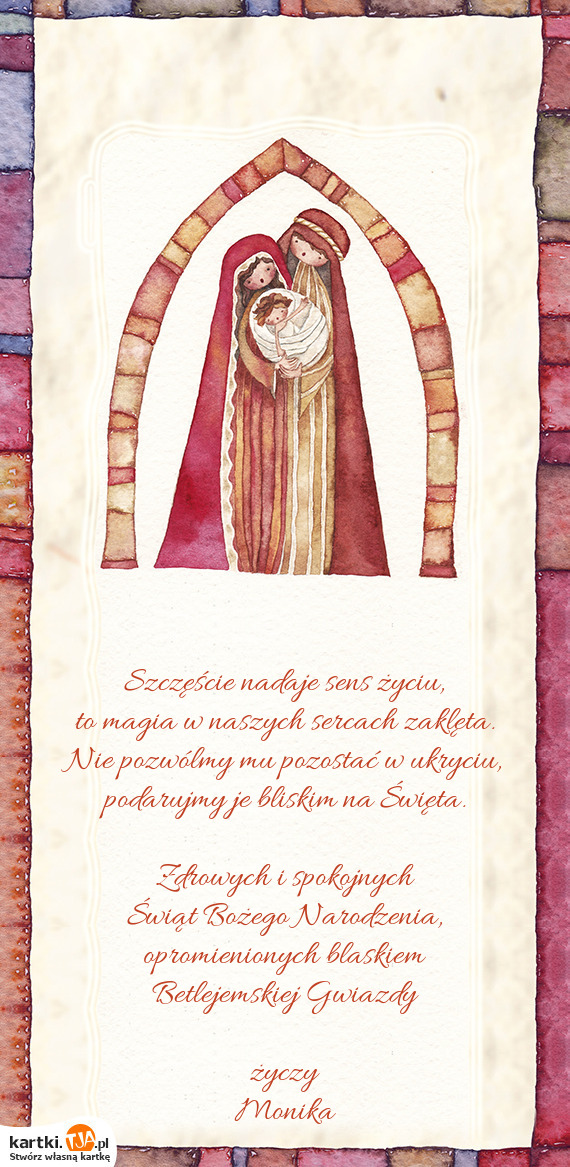 Szczęście nadaje sens życiu,
to magia w naszych sercach zaklęta.
Nie pozwólmy mu pozostać w ukryciu,
podarujmy je bliskim na Święta.
Zdrowych i spokojnych
Świąt Bożego Narodzenia,
opromienionych blaskiem
Betlejemskiej Gwiazdy
życzy
Monika
kartki.TJA.pl
Stwórz własną kartkę